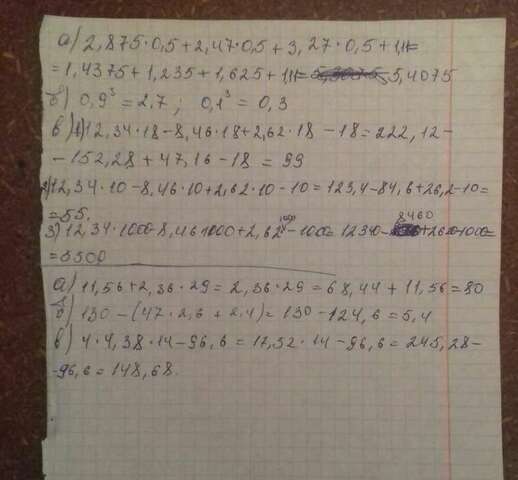 а) 2,875·0,5+2,47·0,5+3,27·0,5+1,11=
=1,4375+1,235+1,625+1,11= 5,4075
б) 0,9³=2,7; 0,1³=0,3
в) 1) 12,34·18-8,46·18+2,62·18-18=222,12-
-152,28+47,16-18=99
2) 12,34·10-8,46·10+2,62·10-10=123,4-84,6+26,2-10=
=55.
3) 12,34·1000-8,46·1000+2,62·1000-1000=12340-8460+2620-1000=
=5500
а) 11,56+2,36·29=2,36·29=68,44+11,56=80
б) 130-(47·2,6+2,4)=130-124,6=5,4
в) 4·4,38·14-96,6=17,52·14-96,6=245,28-
-96,6=148,68.